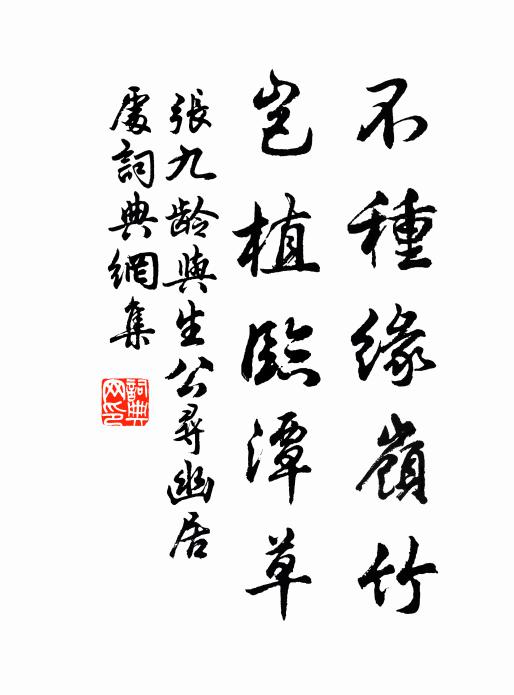 不種緣嶺竹
岂植臨潭草
張九龄與生公尋幽居
處詞典網集
詞典
网印